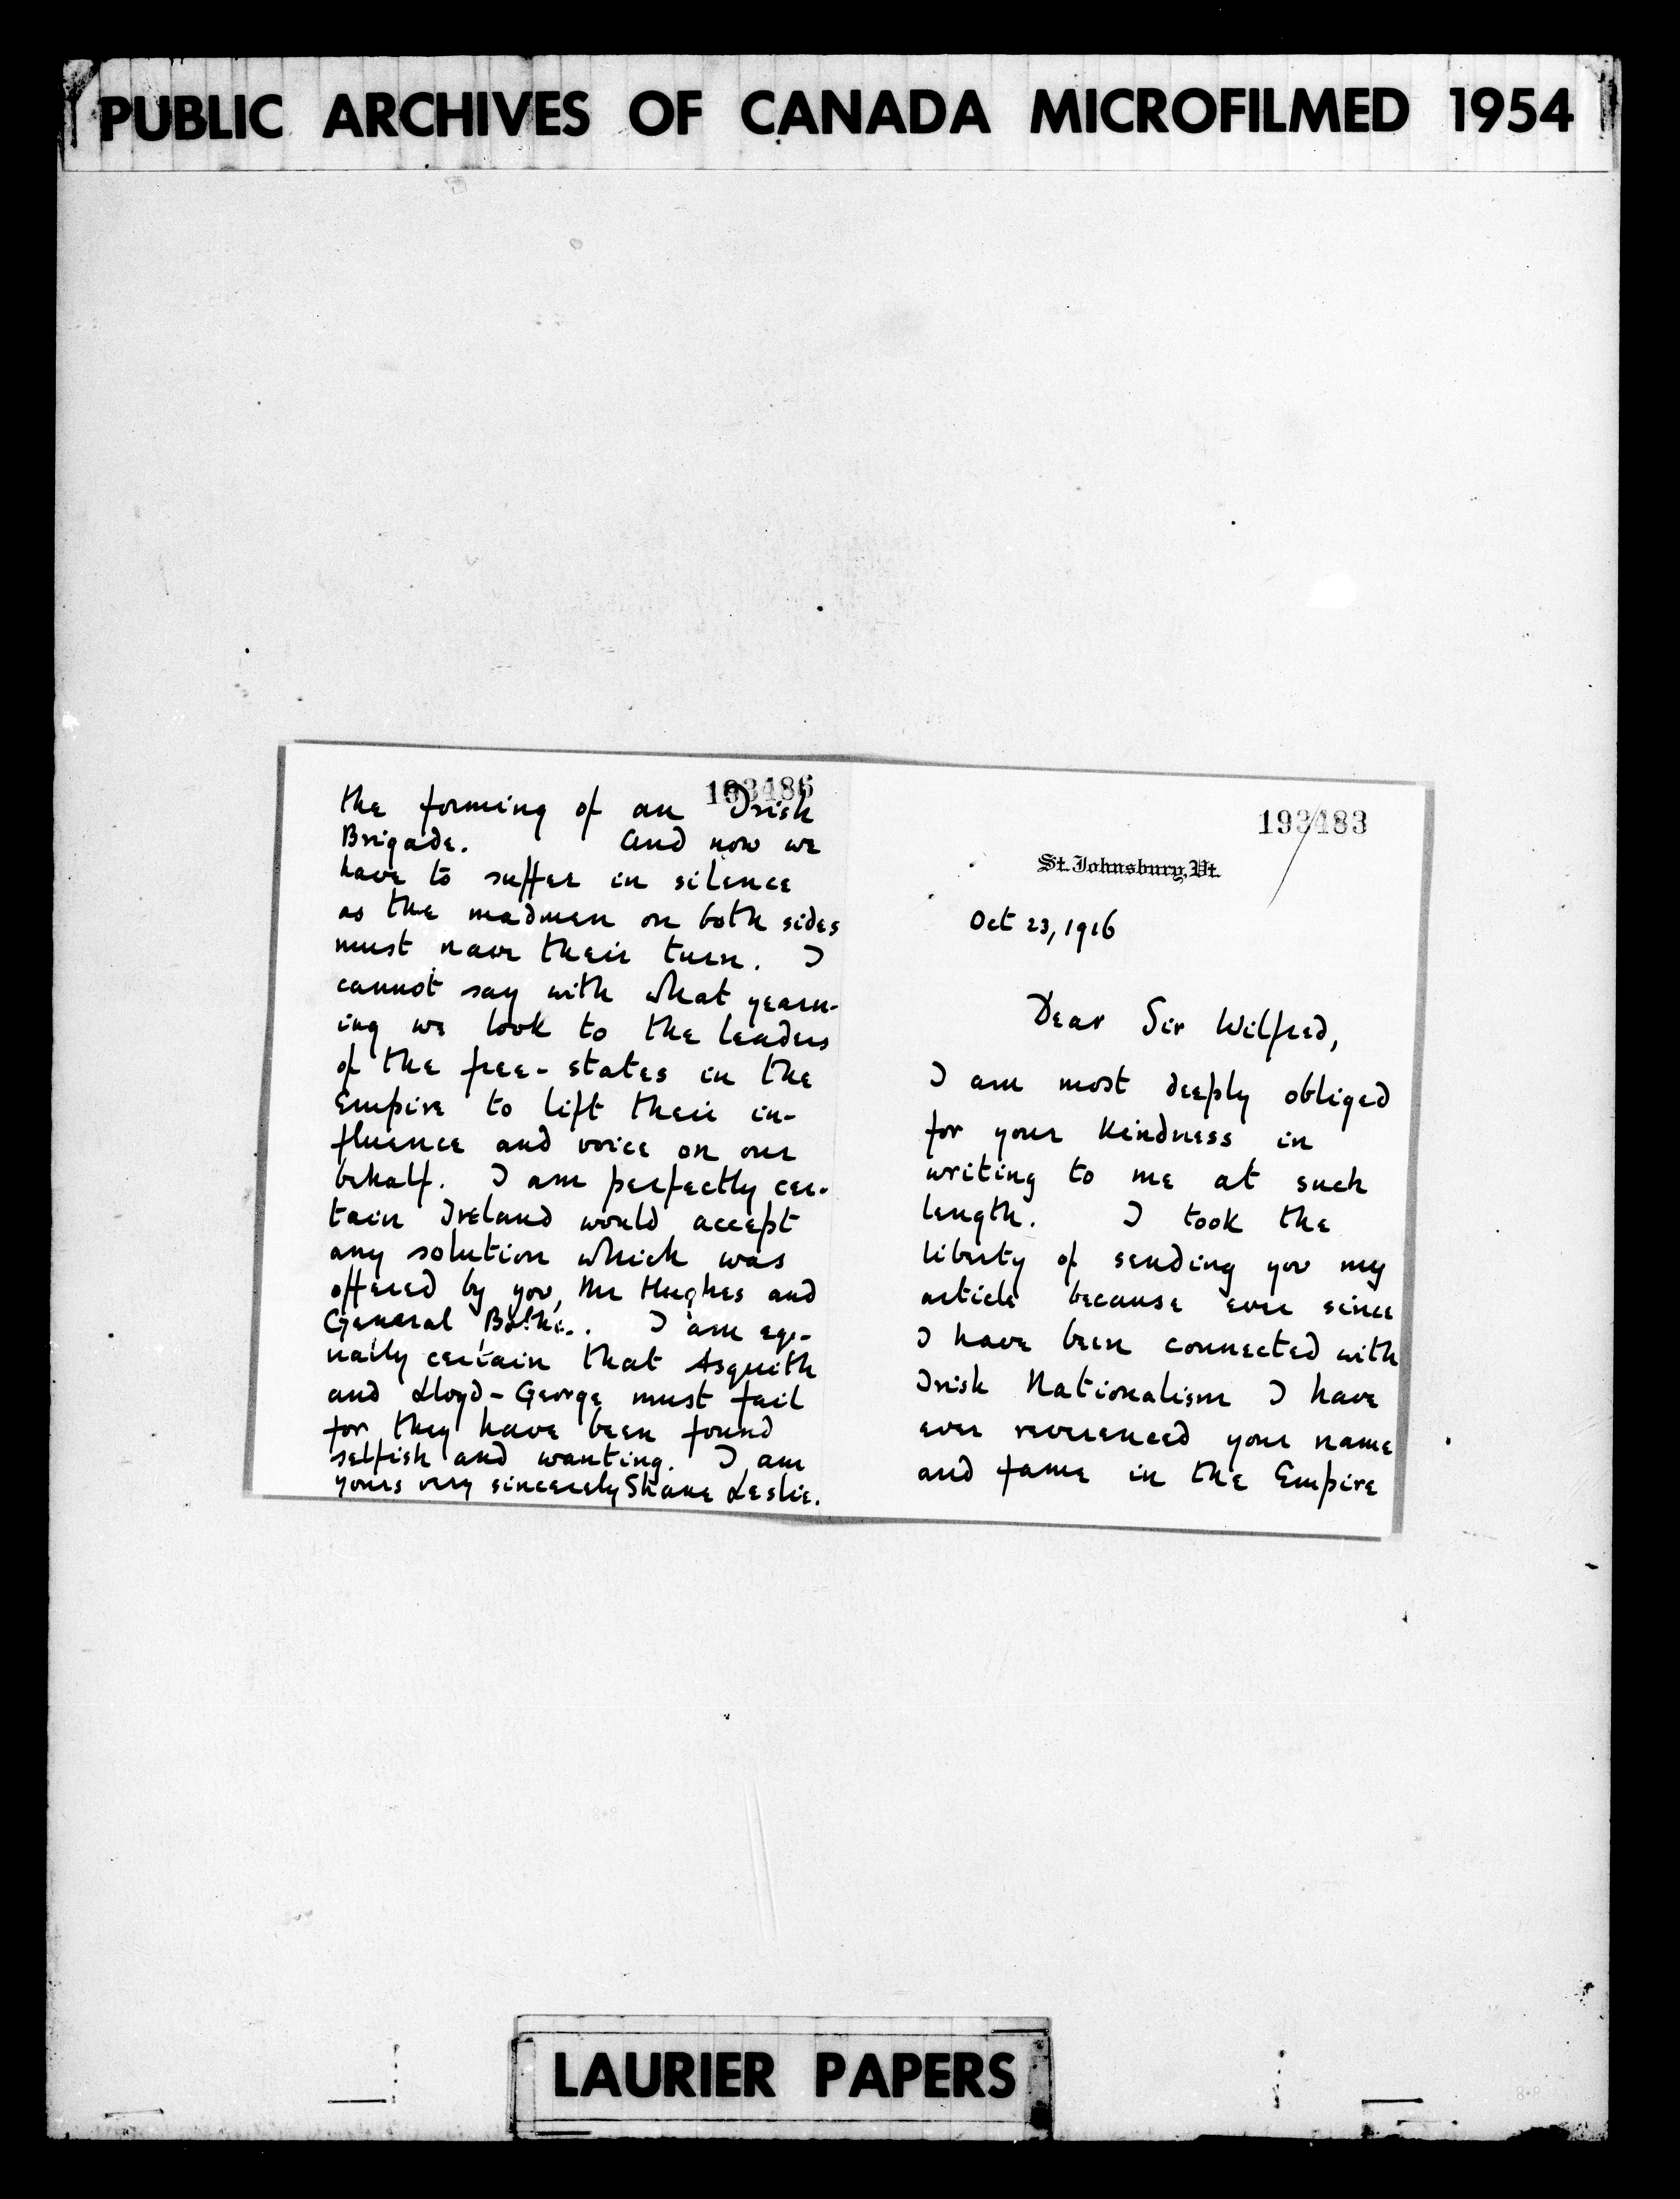 PUBLIC ARCHIVES OF CANADA MICROFILMED 1954
193486
the forming of an Irish
Brigade. And now we
have to suffer in silence
as the madmen on both sides
must have their turn. I
cannot say with what yearn-
ing we look to the leaders
of the free-states in the
Empire to lift their in-
fluence and voice on our
behalf. I am perfectly cer-
tain Ireland would accept
any solution which was
offered by you, Mr Hughes and
General Botha. I am equ-
ually certain that Asquith
and Lloyd-George must fail
for they have been found
selfish and wanting. I am
yours very sincerely Shane Leslie.
193483
St. Johnsbury, Vt.
Oct 23, 1916
Dear Sir Wilfred,
I am most deeply obliged
for your kindness in
writing to me at such
length. I took the
liberty of sending you my
article because ever since
I have been connected with
Irish Nationalism I have
ever reverenced your name
and fame in the Empire
LAURIER PAPERS